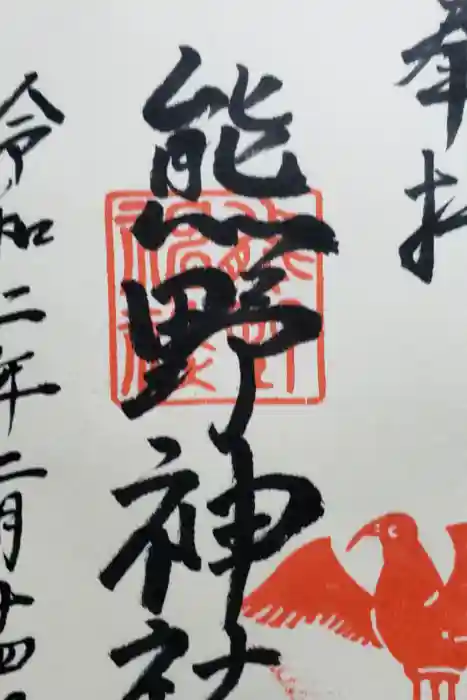 奉拝
熊野神社
令和二年二月廿四